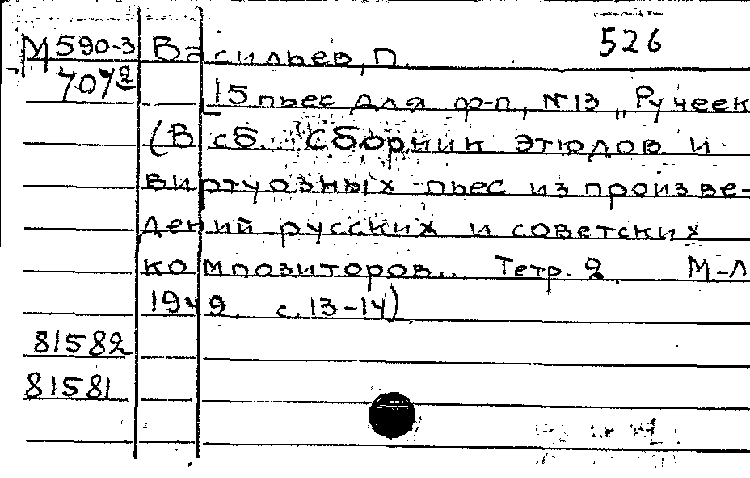 526
М590-3 Васильев, П.
7072
[15 пьес для ф-п, №13 „Ручеек
(В сб. Сборник этюдов и
виртуозных пьес из произве-
дений русских и советских
композиторов... Тетр. 2 М-Л
1949. с. 13-14)
81582
81581